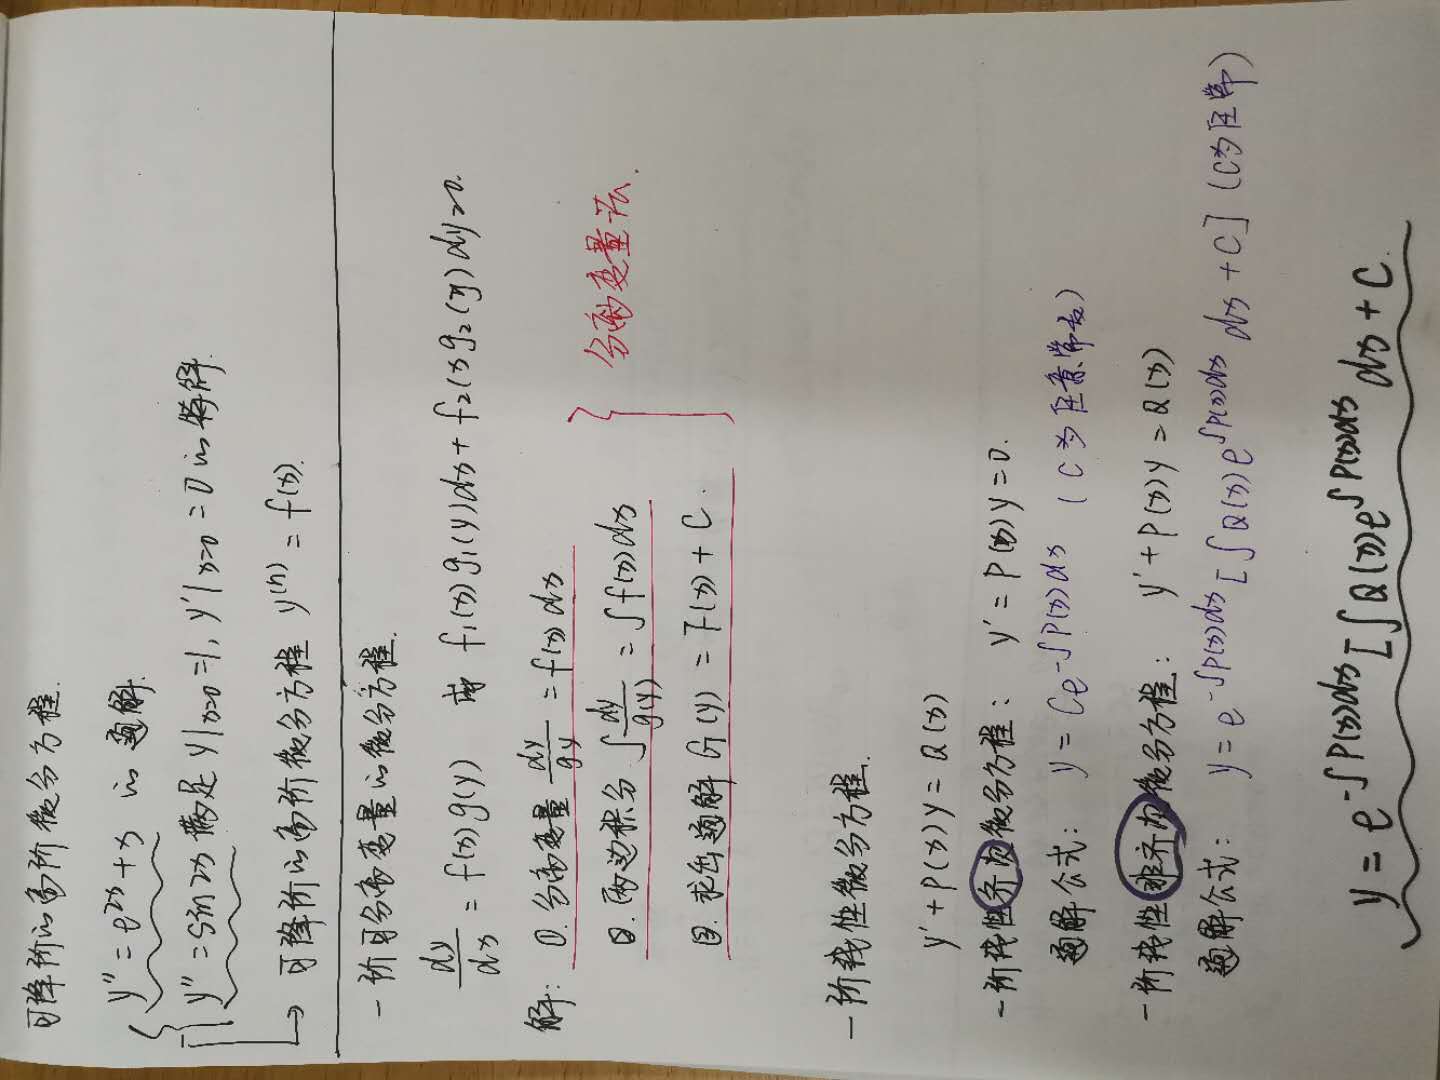 可降阶的高阶微分方程.
y'' = e^{2x} + x 的通解.
y'' = sin2x 满足 y|_{x=0}=1, y'|_{x=0}=0 的特解.
→ 可降阶的高阶微分方程 y^{(n)} = f(x).
一阶可分离变量的微分方程.
dy/dx = f(x)g(y) 或 f₁(x)g₁(y)dx + f₂(x)g₂(y)dy=0.
解: ①. 分离变量 dy/gy = f(x)dx
②. 两边积分 ∫dy/g(y) = ∫f(x)dx
③. 求出通解 G(y) = F(x) + C.
分离变量法.
一阶线性微分方程.
y' + P(x)y = Q(x)
一阶线性齐次微分方程: y' = P(x)y=0.
通解公式: y = Ce^{-∫P(x)dx} (C为任意常数)
一阶线性非齐次微分方程: y' + P(x)y = Q(x)
通解公式: y = e^{-∫P(x)dx}[∫Q(x)e^{∫P(x)dx}dx + C] (C为任常)
y = e^{-∫P(x)dx}[∫Q(x)e^{∫P(x)dx}dx + C